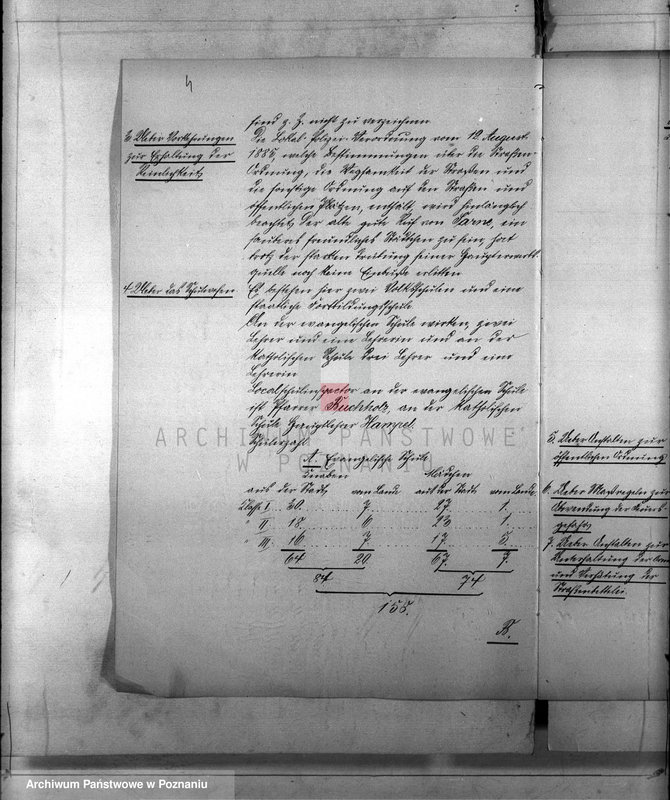 4
sind z. Z. nicht zu verzeichnen
3. Ueber Vorkehrungen
zur Erhaltung der
Reinlichkeit
Die Lokal-Polizei-Verordnung vom 12. August
1885, welche Bestimmungen über die Straßen-
Ordnung, die Wegsamkeit der Straßen und
die sonstige Ordnung auf den Straßen und
öffentlichen Plätzen, enthält, wird hinlänglich
beachtet. Der alte gute Ruf von Sarne, ein
sauberes freundliches Städtchen zu sein, hat
trotz der starken seiner Haupterwerbs-
quelle noch keine Einbuße erlitten
4. Ueber das Schulwesen
Es bestehen hier zwei Volksschulen und eine
staatliche Fortbildungsschule
An der evangelischen Schule wirken zwei
Lehrer und eine Lehrerin und an der
katholischen Schule drei Lehrer und eine
Lehrerin
Localschulinspector an der evangelischen Schule
ist Pfarrer Buchholz, an der katholischen
Schule Hampel.
Schülerzahl
A. Evangelische Schule
Knaben Mädchen
aus der Stadt vom Lande aus der Stadt vom Lande
Classe I. 30. 7. 27. 1.
" II. 18. 6 23 1.
" III. 16. 7. 17. 5.
64 20 67. 7.
84 74
158.
B.
5. Ueber Anstalten zur
öffentlichen Ordnung
6. Ueber Maßregeln zur
Abwendung der Feuers-
gefahr
7. Ueber Anstalten zur
Unterhaltung der
und Verhütung der
Straßenbettelei
ARCHIWUM PAŃSTWOWE
W POZNANIU
Archiwum Państwowe w Poznaniu